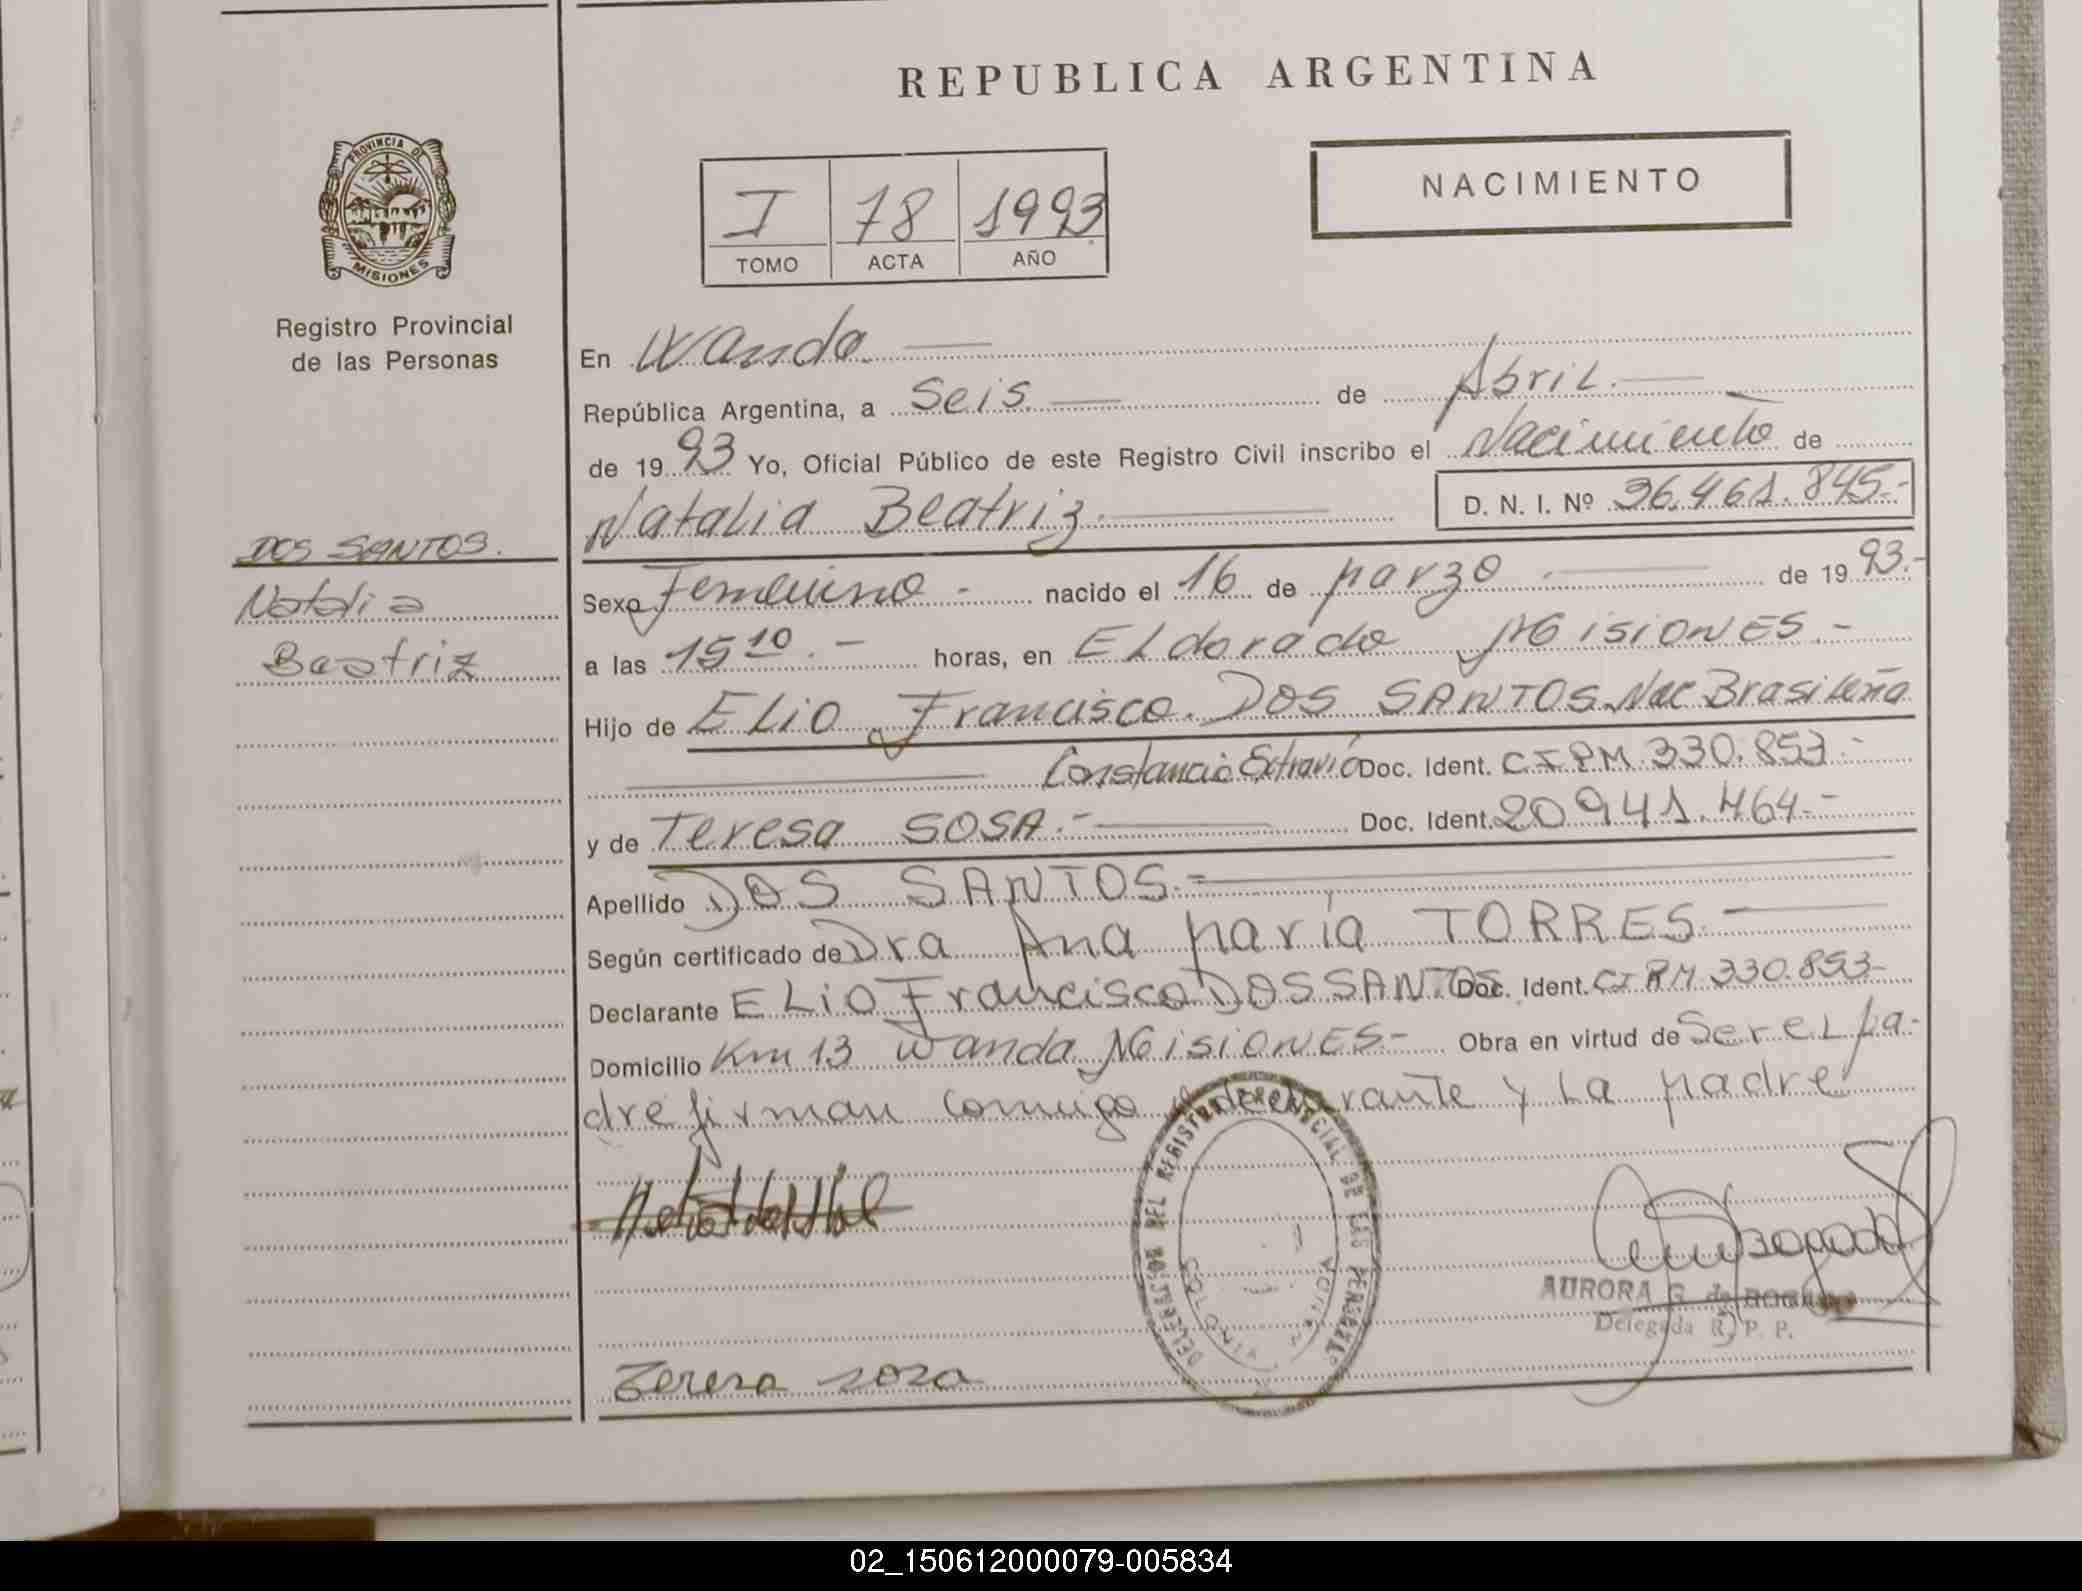 REPUBLICA ARGENTINA
PROVINCIA DE
MISIONES
Registro Provincial
de las Personas
I 78 1993
TOMO ACTA AÑO
NACIMIENTO
En Wanda.
República Argentina, a Seis. de Abril.
de 1993 Yo, Oficial Público de este Registro Civil inscribo el Nacimiento de
Natalia Beatriz. D. N. I. Nº 36.461.845.-
DOS SANTOS.
Natalia
Beatriz
Sexo Femenino - nacido el 16 de Marzo. de 1993.-
a las 15 10.- horas, en ELdorado MISIONES.-
Hijo de ELIO Francisco. DOS SANTOS. Nac Brasileña
Constancia Extravió Doc. Ident. CIPM.330.853.-
y de Teresa SOSA.- Doc. Ident. 20.941.464.-
Apellido DOS SANTOS.-
Según certificado de Dra Ana María TORRES
Declarante ELIO Francisco DOS SANTOS Doc. Ident. CIPM.330.853-
Domicilio Km 13 Wanda MISIONES- Obra en virtud de Ser eL Pa-
dre firman conmigo el declarante y La Madre
DEL REGISTRO PROVINCIAL DE LAS PERSONAS
COLONIA WANDA
AURORA G. de
Delegada R. P. P.
Teresa sosa
02_150612000079-005834